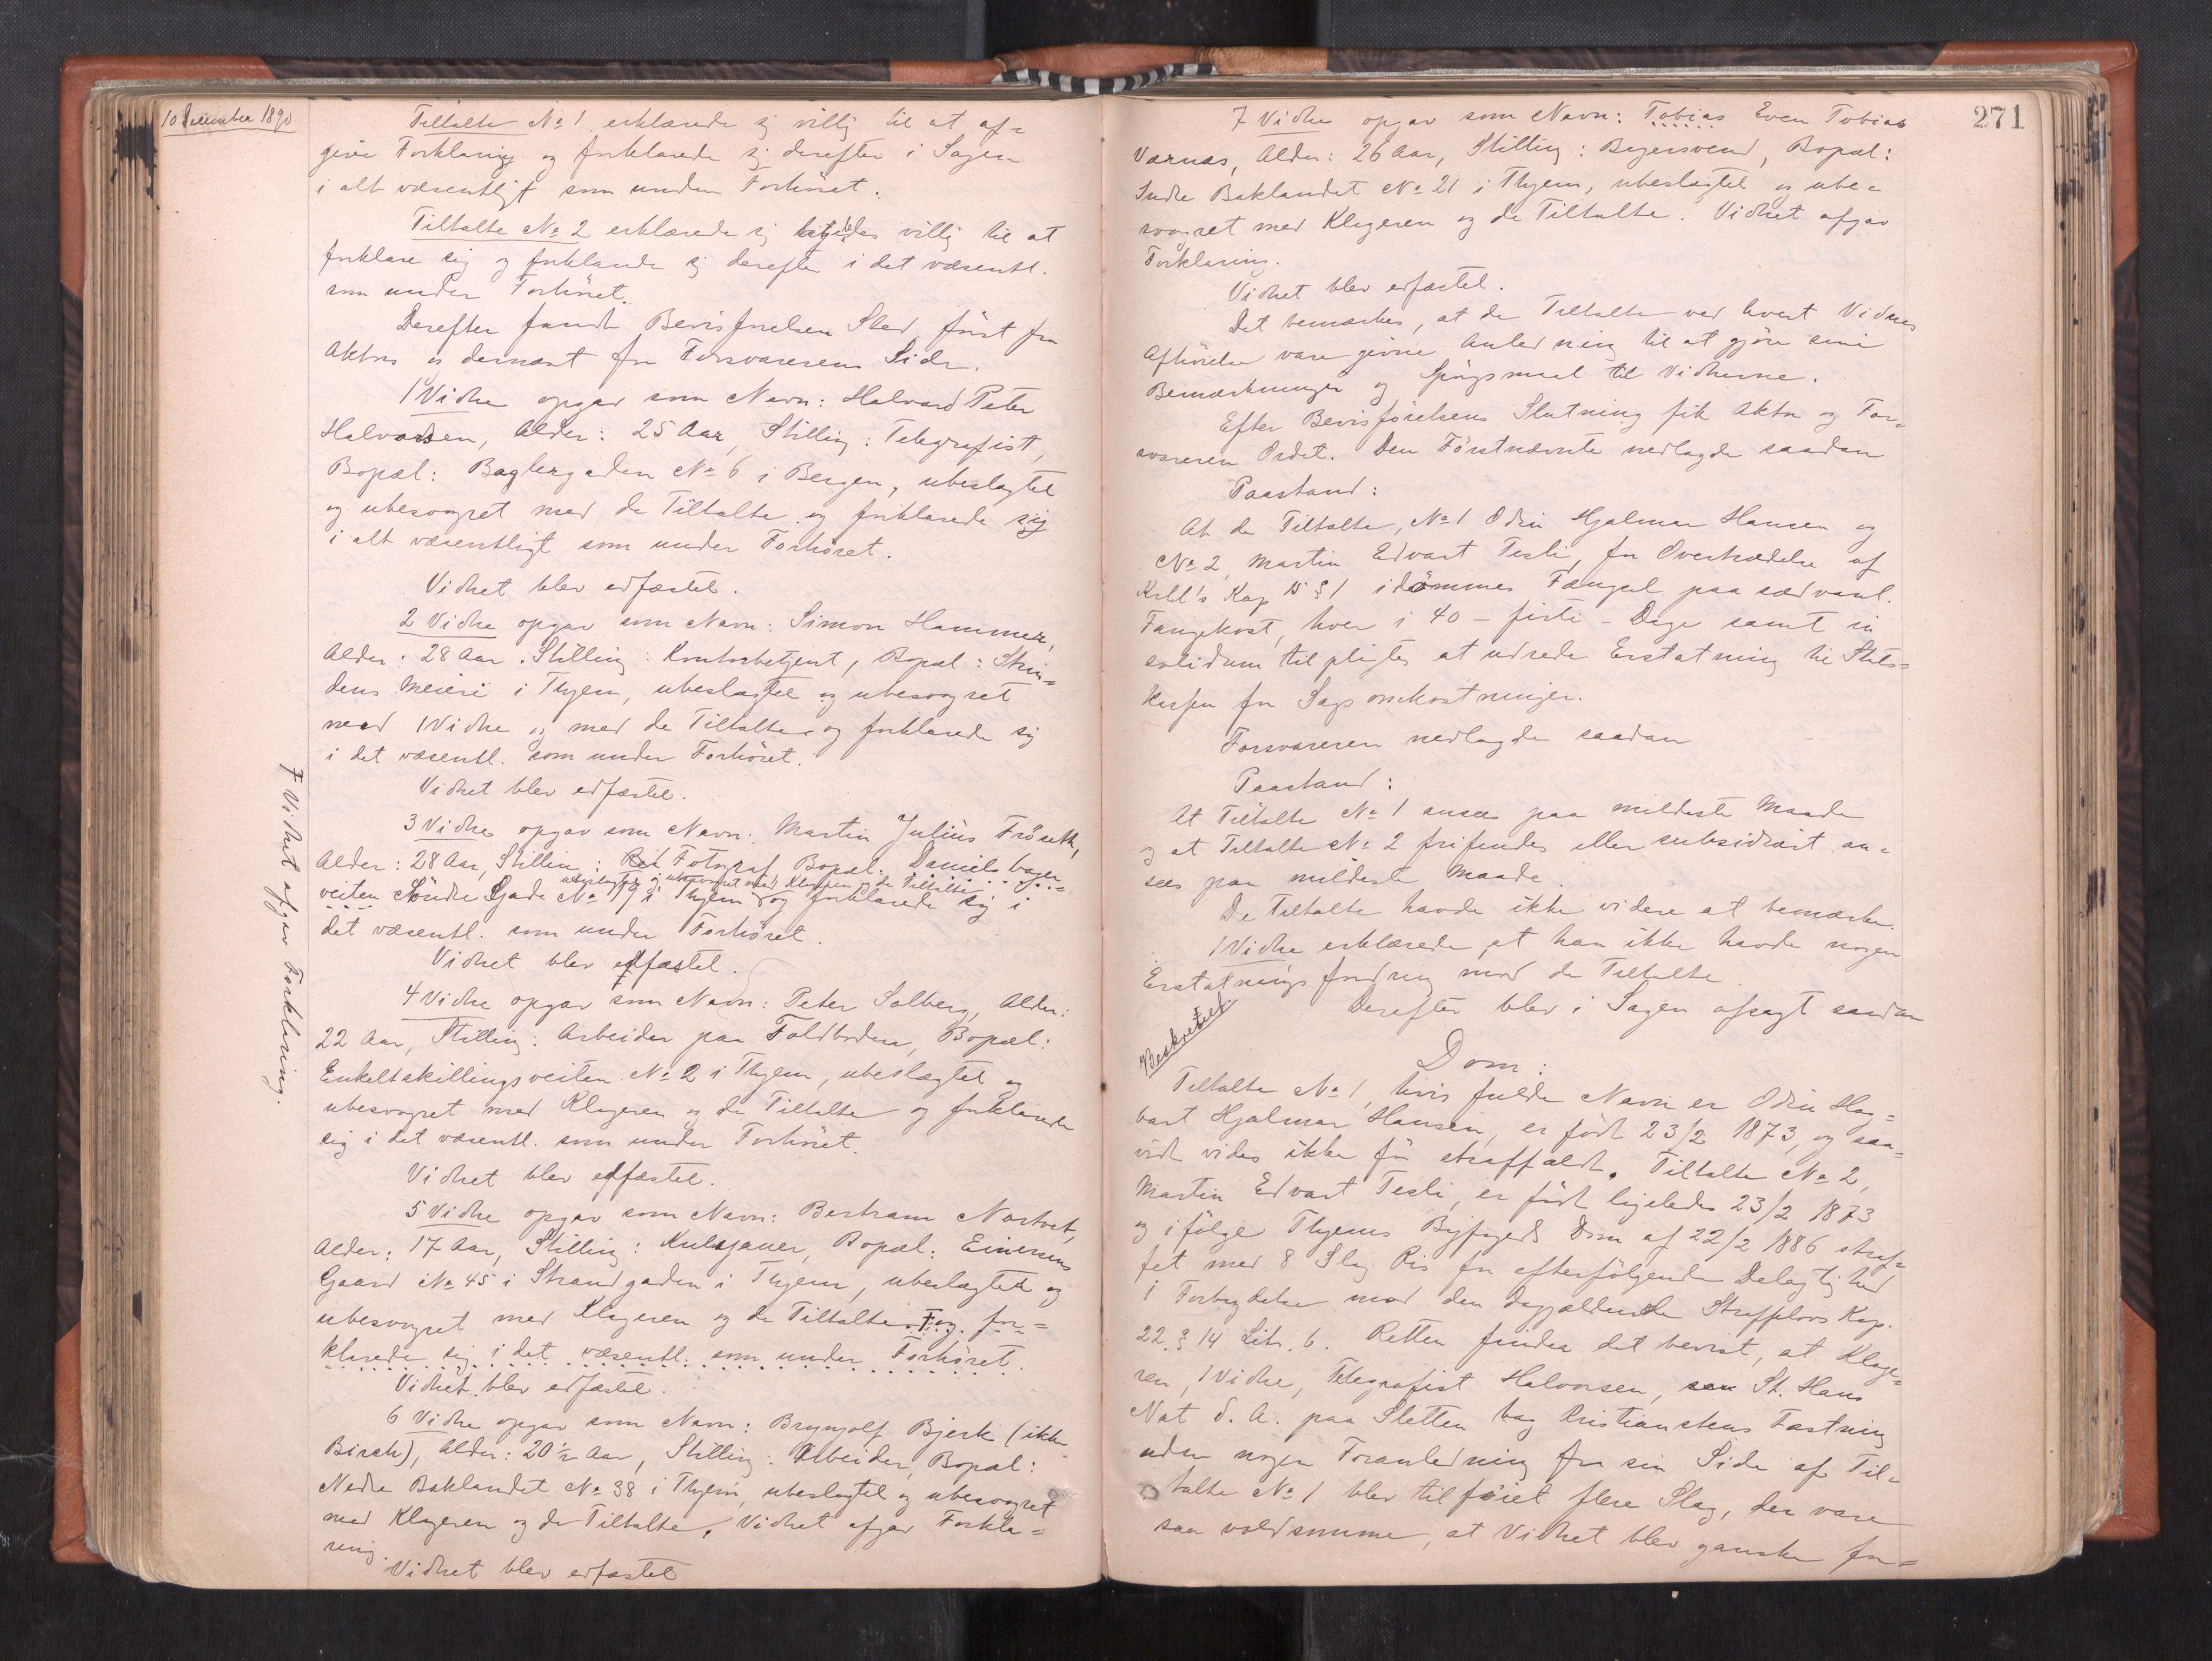 10 December 1890
Tiltalte No 1 erklærede sig villig til at af=
give Forklaring og forklarede sig derefter i Sagen
i alt væsentligt som under Forhöret.
Tiltalte No 2 erklærede sig ligeledes villig til at
forklare sig og forklarede sig derefter i det væsentl.
som under Forhöret.
Derefter fandt Bevisförelsen Sted, först fra
Aktors og dernæst fra Forsvarerens Side.
1 Vidne opgav som Navn: Halvard Peter
Halvorsen, Alder: 25 Aar, Stilling: Telegrafist,
Bopæl: Baglergaden No 6 i Bergen, ubeslægtet
og ubesvogret med de Tiltalte og forklarede sig
i alt væsentligt som under Forhöret.
Vidnet blev edfæstet.
2 Vidne opgav som Navn: Simon Hammer,
Alder: 28 Aar. Stilling: Kontorbetjent, Bopæl: Strin=
dens Meieri i Thjem, ubeslægtet og ubesvogret
med 1 Vidne og med de Tiltalte og forklarede sig
i det væsentl. som under Forhöret.
Vidnet blev edfæstet.
3 Vidne opgav som Navn: Martin Julius Fröseth,
Alder: 28 Aar, Stilling: Fotograf Bopæl: Daniels bager
ubeslægtet og ubesvogret med Klageren og de Tiltalte
veiten Söndre Gade No 19 i Thjem og forklarede sig i
det væsentl. som under Forhöret.
Vidnet blev edfæstet.
4 Vidne opgav som Navn: Peter Solberg, Alder:
22 Aar, Stilling: Arbeider paa Toldboden, Bopæl:
Enkeltskillingsveiten No 2 i Thjem, ubeslægtet og
ubesvogret med Klageren og de Tiltalte og forklarede
sig i det væsentl. som under Forhöret.
Vidnet blev edfæstet.
5 Vidne opgav som Navn: Bertram Nortvet,
Alder: 17 Aar, Stilling: Kulsjauer, Bopæl: Einersens
Gaard No 45 i Strandgaden i Thjem, ubeslægtet og
ubesvogret med Klageren og de Tiltalte. Ŧ og for=
klarede sig i det væsentl. som under Forhöret.
Vidnet blev edfæstet.
6 Vidne opgav som Navn: Brynjolf Bjerk (ikke
Birch), Alder: 20 ½ Aar, Stilling: Arbeider, Bopæl:
Nedre Baklandet No 38 i Thjem, ubeslægtet og ubesvogret
med Klageren og de Tiltalte. Vidnet afgav Forkla=
ring.
Vidnet blev edfæstet
Ŧ Vidnet afgav Forklaring.
271
7 Vidne opgav som Navn: Tobias Even Tobias
Værnæs, Alder: 26 Aar, Stilling: Bagersvend, Bopæl:
Indre Baklandet No 21 i Thjem, ubeslægtet og ube=
svogret med Klageren og de Tiltalte. Vidnet afgav
Forklaring.
Vidnet blev edfæstet.
Det bemærkes, at de Tiltalte ved hvert Vidnes
Afhörelse vare givne Anledning til at gjöre sine
Bemærkninger og Spörgsmaal til Vidnerne.
Efter Bevisförelsens Slutning fik Aktor og For=
svareren Ordet. Den Förstnævnte nedlagde saadan
Paastand:
At de Tiltalte, No 1 Odin Hjalmar Hansen og
No 2, Martin Edvart Tesli, for Overtrædelse af
Krlb's Kap 15 § 1 idömmes Fængsel paa sædvanl.
Fangekost, hver i 40 - firti - Dage samt in
solidum tilpligtes at udrede Erstatning til Stats=
kassen for Sagsomkostninger.
Forsvareren nedlagde saadan
Paastand:
At Tiltalte No 1 ansees paa mildeste Maade
og at Tiltalte No 2 frifindes eller subsidiært an=
sees paa mildeste Maade.
De Tiltalte havde ikke videre at bemærke.
1 Vidne erklærede, at han ikke havde nogen
Erstatningsfordring mod de Tiltalte.
Derefter blev i Sagen afsagt saadan
Beskrevet
Dom:
Tiltalte No 1, hvis fulde Navn er Odin Hag=
bart Hjalmar Hansen, er född 23/2 1873, og saa=
vidt vides ikke för straffældt. Tiltalte No 2,
Martin Edvart Tesli, er född ligeledes 23/2 1873
og ifölge Thjems Byfogeds Dom af 22/2 1886 straf=
fet med 8 Slag Ris for efterfölgende Delagtighed
i Forbrydelse mod den dagjældende Straffelovs Kap.
22 § 14 Litr. b. Retten finder det bevist, at Klage=
ren, 1 Vidne, Telegrafist Halvorsen, St. Hans
Nat d. A. paa Sletten bag Kristianstens Fæstning
uden nogen Foranledning fra sin Side af Til=
talte No 1 blev tilföiet flere Slag, der vare
saa voldsomme, at Vidnet blev ganske for=